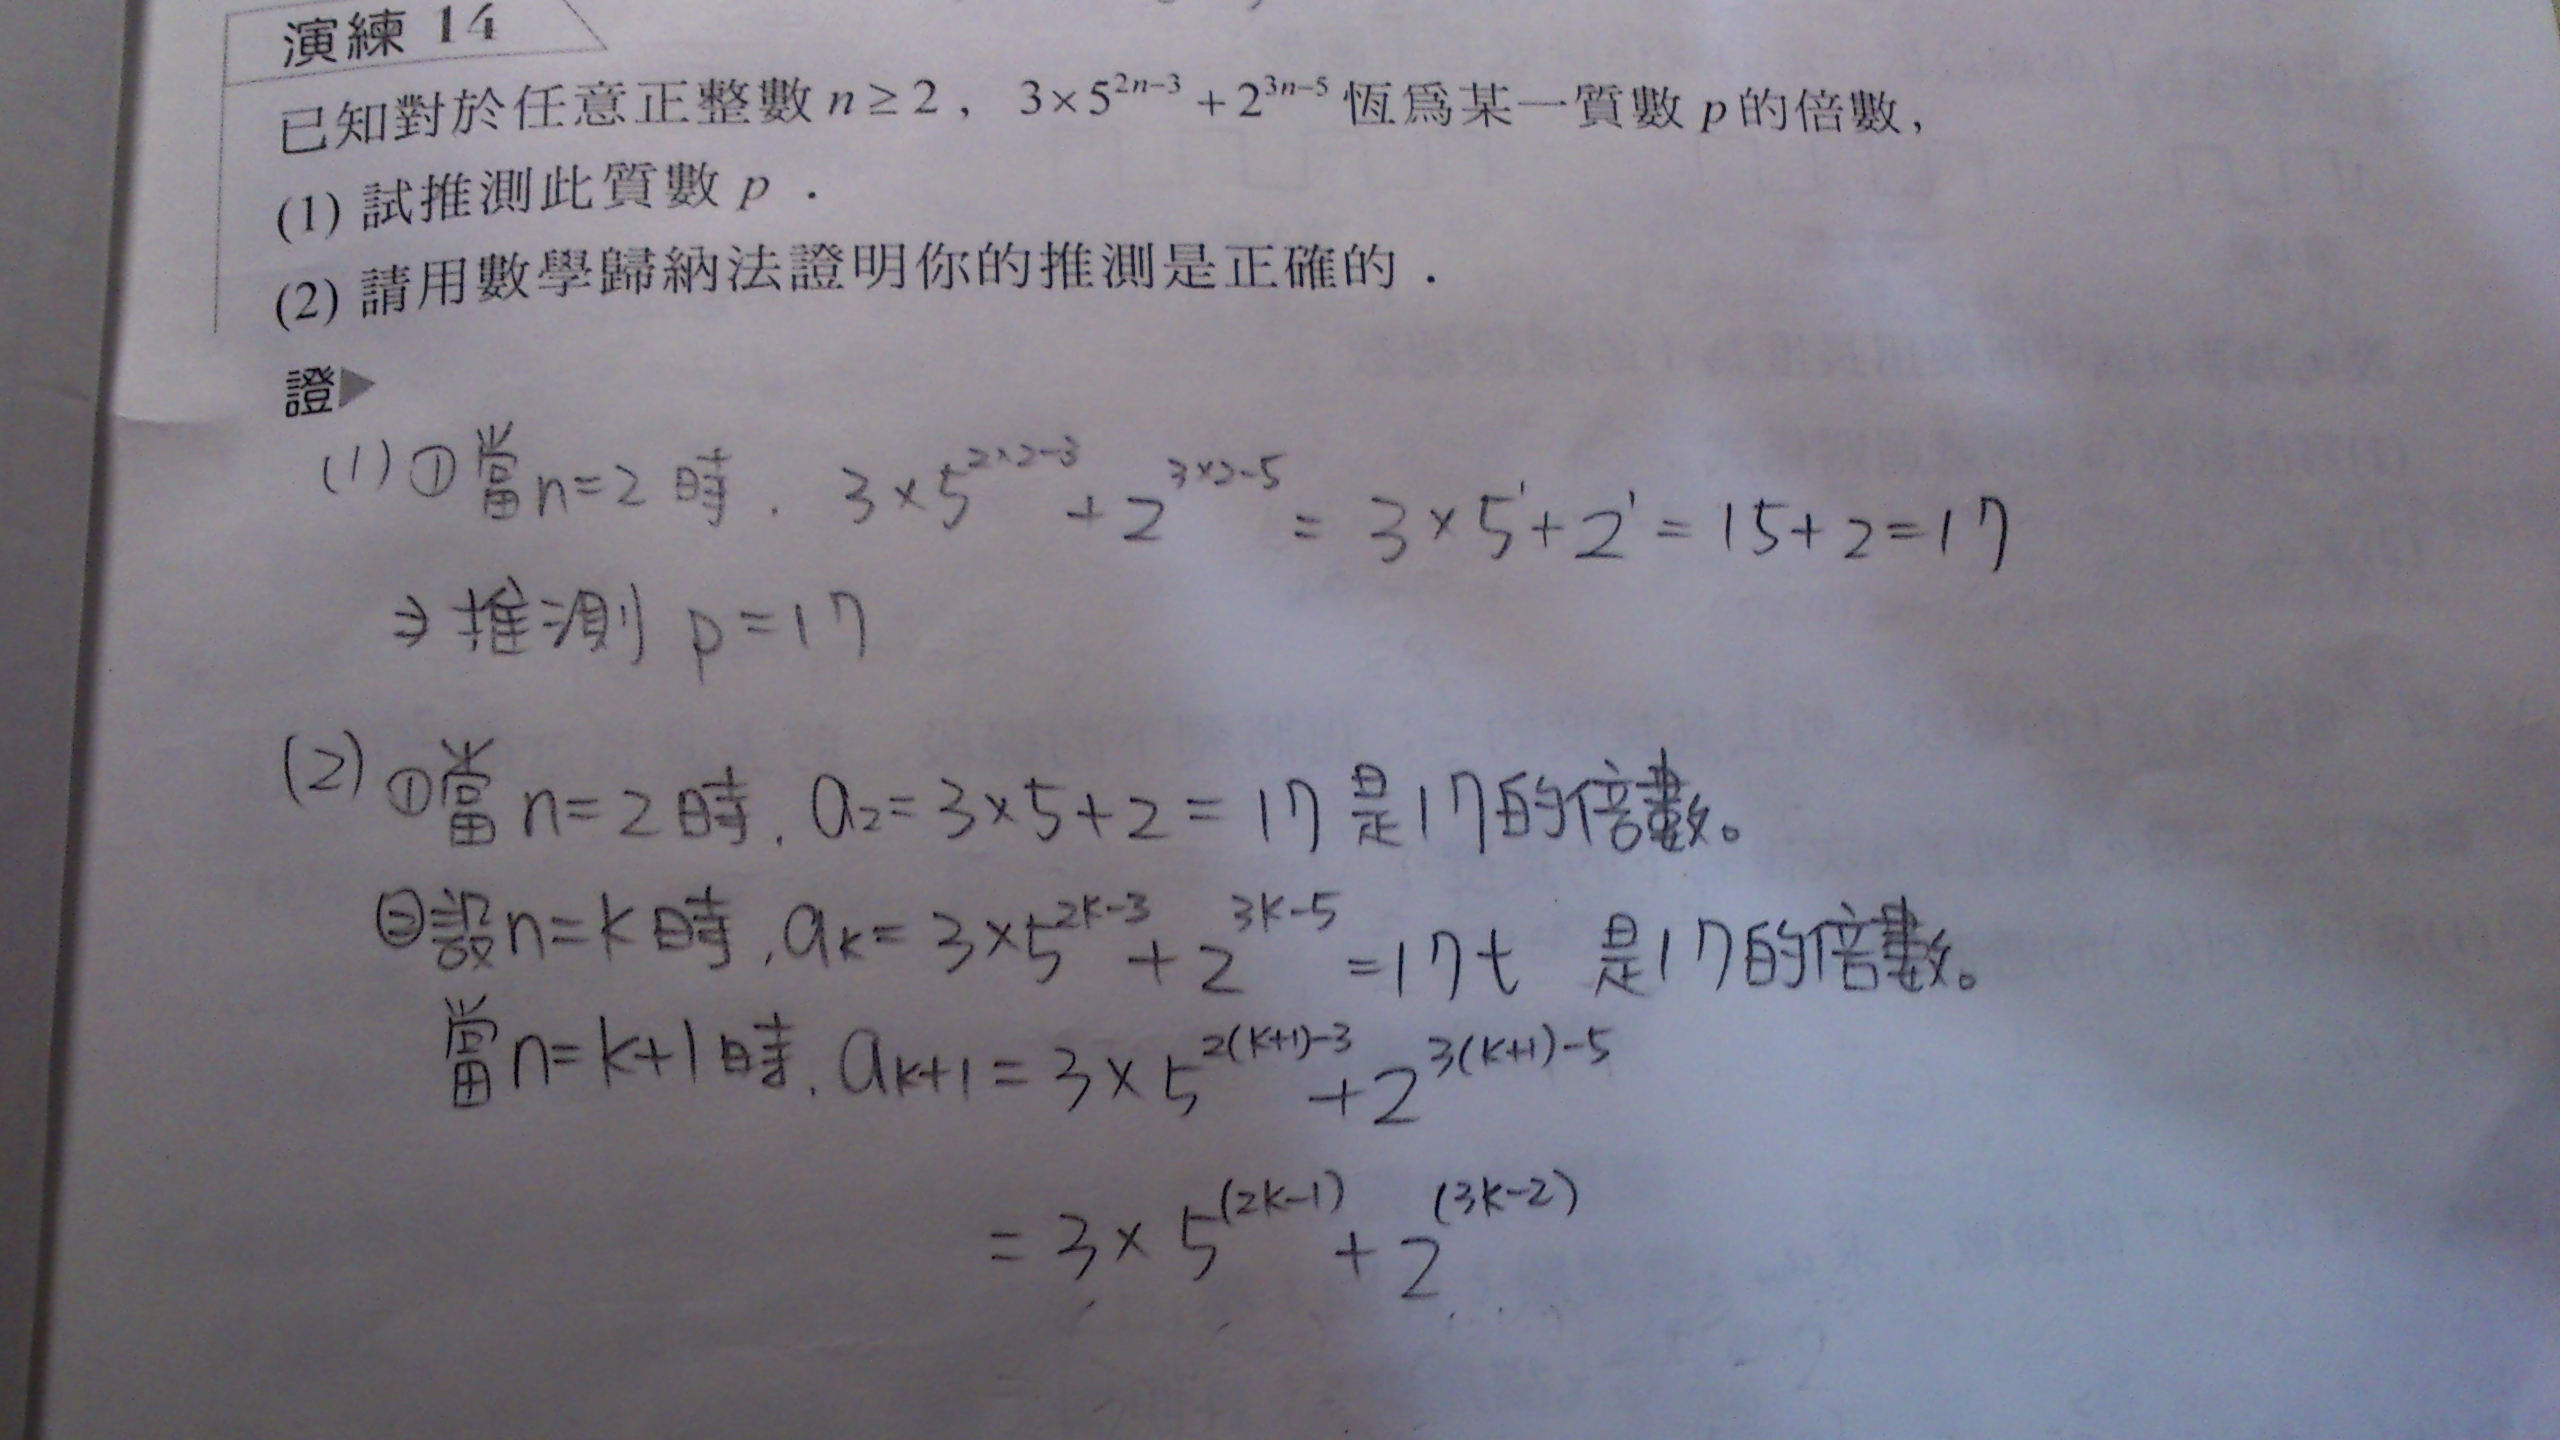 演練 14
已知對於任意正整數 n ≥ 2，3×5^{2n−3} + 2^{3n−5} 恆為某一質數 p 的倍數，
(1) 試推測此質數 p．
(2) 請用數學歸納法證明你的推測是正確的．
證▶
(1) ①當n=2時. 3×5^{2×2-3}+2^{3×2-5} = 3×5^1+2^1=15+2=17
⇒推測 p=17
(2) ①當n=2時. a₂=3×5+2=17是17的倍數。
②設n=k時, a_k=3×5^{2k-3}+2^{3k-5}=17t 是17的倍數。
當n=k+1時. a_{k+1}=3×5^{2(k+1)-3}+2^{3(k+1)-5}
=3×5^{(2k-1)}+2^{(3k-2)}